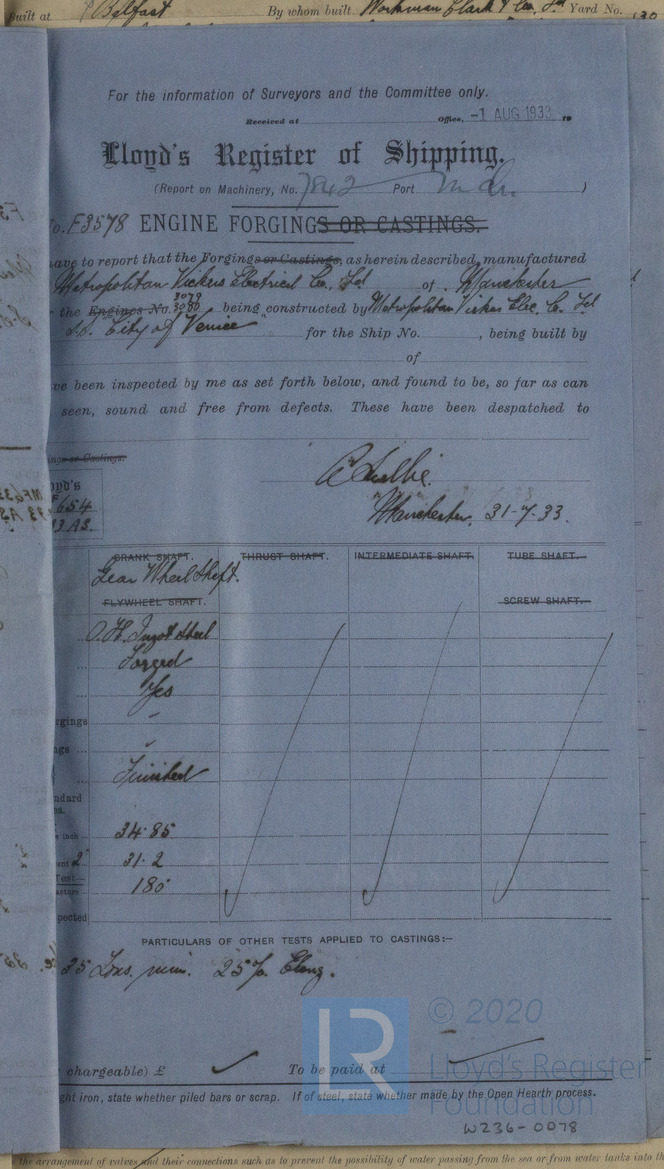 Built at Belfast By whom built Workman Clark & Co. Ld Yard No.
For the information of Surveyors and the Committee only.
Received at Office, -1 AUG 1933 19
Lloyd's Register of Shipping.
(Report on Machinery, No. 7842 Port )
No. F3578 ENGINE FORGINGS OR CASTINGS.
have to report that the Forgings or Castings, as herein described, manufactured
Metropolitan Vickers Electrical Co. Ld of Manchester
the Engines No. 3079 3080 being constructed by Metropolitan Vickers Elec. Co. Ld
s.s. City of Venice for the Ship No. , being built by
of
ve been inspected by me as set forth below, and found to be, so far as can
seen, sound and free from defects. These have been despatched to
ngs or Castings.
oyd's
654
3 AS.
Manchester, 31-7-33.
CRANK SHAFT. THRUST SHAFT. INTERMEDIATE SHAFT. TUBE SHAFT.
Gear Wheel Shaft.
FLYWHEEL SHAFT. SCREW SHAFT.
O.H. Ingot steel
Forged
Yes
rgings
ngs ...
Finished
ndard
inch 34.85
ent 2" 31.2
Test 180
pected
PARTICULARS OF OTHER TESTS APPLIED TO CASTINGS:—
25 Tons. min. 25% Elong.
chargeable) £ To be paid at
ght iron, state whether piled bars or scrap. If of steel, state whether made by the Open Hearth process.
LR
© 2020
Lloyd's Register
Foundation
W236-0078
the arrangement of valves and their connections such as to prevent the possibility of water passing from the sea or from water tanks into